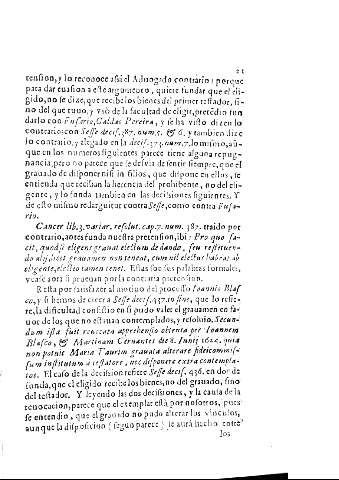 tension, y lo reconoce assi el Advogado contrario: porque
para dar evasion a este argumento, quiere fundar que el eli-
gido, no se dize, que recibe los bienes del primer testador, si-
no del que tuvo, y usò de la facultad de eligir, pretẽdiò fun
darlo con Fusario, Caldas Pereira, y se ha visto dizen lo
contrario: con Sesse decis. 387. num. 5. & 6. y tambien dize
lo contrario, y elegado en la decis. 373. num. 7. lo mismo, aũ-
que en los numeros siguientes parece tiene alguna repug-
nancia, pero no parece que se desvia de sentir siempre, que el
gravado de disponer inter filios, que dispone en ellos, se
entienda que recissan la herencia del prohibente, no del eli-
gente, y lo funda tambien en las decisiones siguientes. Y
de esto mismo redarguir contra Sesse, como contra Fusa-
rio.
Cancer lib. 3. variar. resolut. cap. 7. num. 387. traido por
contrario, antes funda nuestra pretension, ibi: Pro quo fa-
cit, quod si eligens gravat electum de dando, seu restituen-
do alij, licet gravamen non teneat, cum nil electus habeat ab
eligente, electio tamen tenet. Estas son sus palabras formales,
y vease aora si prueban por la contraria pretension.
Resta por satisfazer al motivo del processo Ioannis Blas
co, y si hemos de creer a Sesse decis. 437. in fine, que lo refie-
re, la dificultad consistio en si pudo valer el gravamen en fa-
vor de los que no estavan contemplados, y resolvio, Secun-
dum ista fuit revocata apprehensio obtenta per Ioannem
Blasco, & Martinam Cervantes die 8. Iunij 1622. quia
non potuit Maria Taurim gravata alterare fideicommis-
sum institutum à testatore, nec disponere extra contempla-
tos. El caso de la decission refiere Sesse decis. 436. en donde
funda, que el eligido recibe los bienes, no del gravado, sino
del testador. Y leyendo las dos decissiones, y la causa de la
revocacion, parece que el exemplar está por nosotros, pues
se entendio, que el gravado no pudo alterar los vinculos,
aunque la disposicion (segun parece) se avrá hecho entre
los